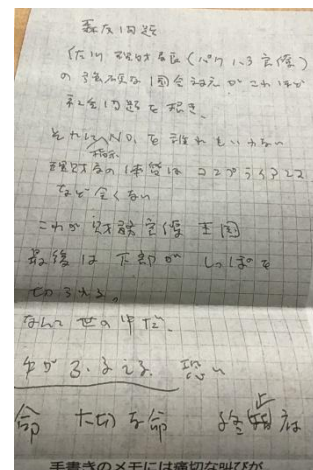 森友問題
佐川理財局長(パワハラ官僚)
の強硬な国会対応がこれほど
社会問題を招き、
それにNO。を誰れもいわない
指示
理財局の体質はコンプライアンス
など全くない
これが財務官僚王国
最後は下部がしっぽを
切られる。
なんて世の中だ、
手がふるえる。恐い
命 大切な命 終止
手書きのメモには痛切な叫びが